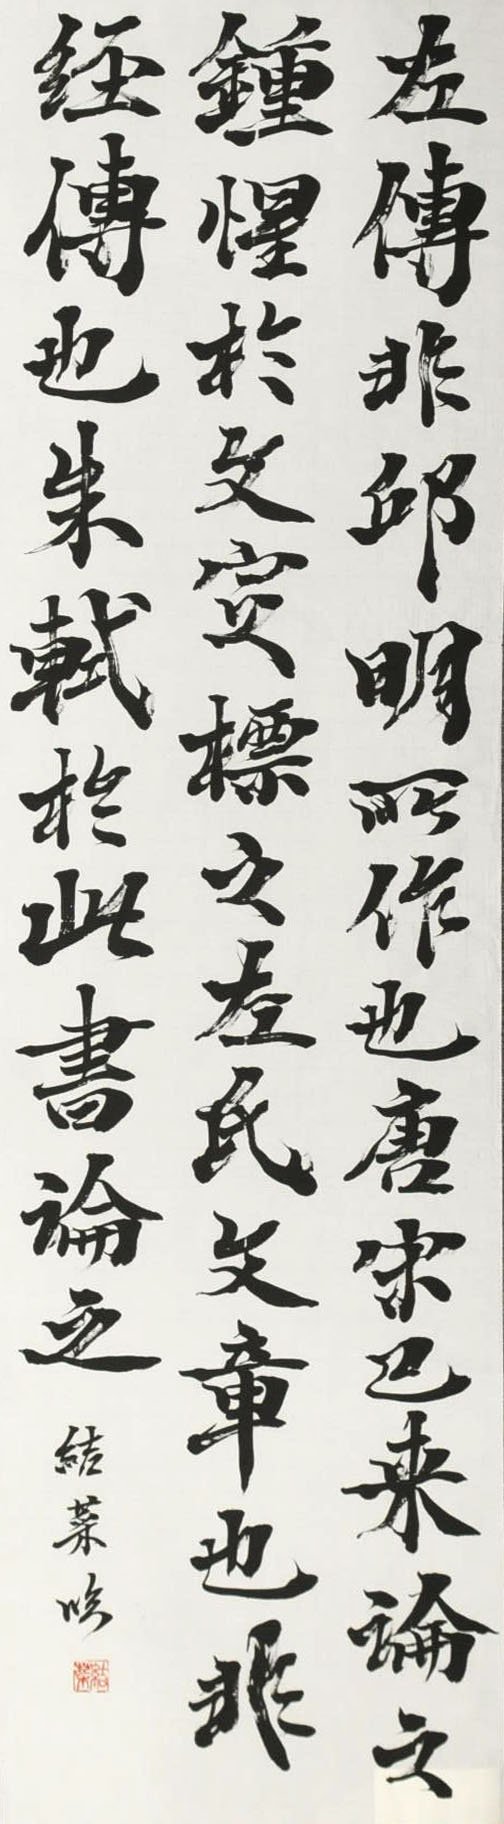 左傳非邱明所作也唐宋已来論之
鍾惺於文定標之左氏文章也非
経傳也朱軾於此書論之
結菜